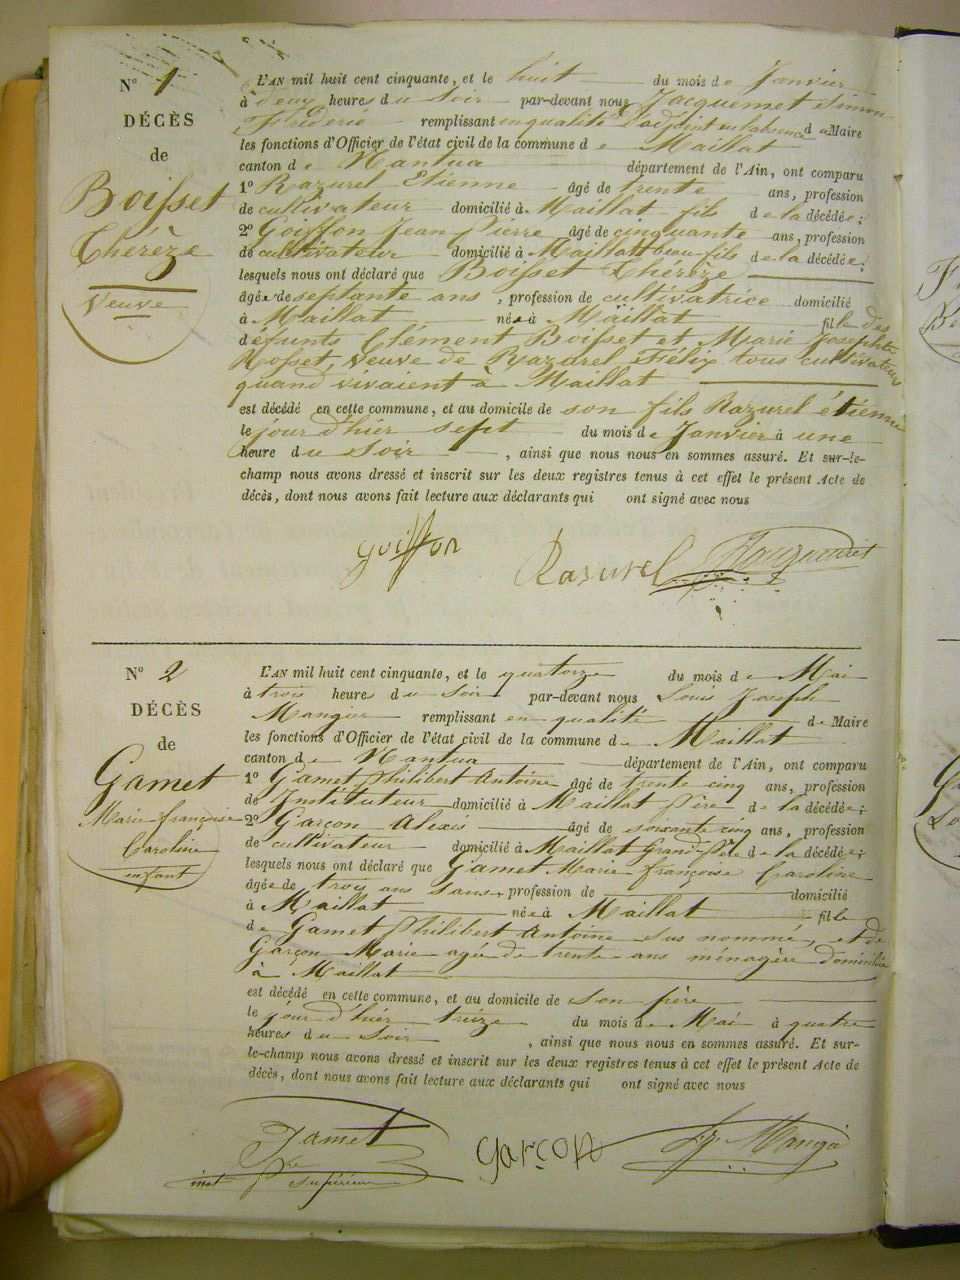 N° 1
DÉCÈS
de
Boisset
Thérèze
Veuve
L'AN mil huit cent cinquante, et le huit du mois de Janvier
à deux heures du Soir par-devant nous Jacquemet Simon
Fréderic remplissant en qualité d'adjoint en l'absence du Maire
les fonctions d'Officier de l'état civil de la commune de Maillat
canton de Nantua département de l'Ain, ont comparu
1° Razurel Etienne âgé de trente ans, profession
de cultivateur domicilié à Maillat fils de la décédée;
2° Goiffon Jean Pierre âgé de cinquante ans, profession
de cultivateur domicilié à Maillat beau-fils de la décédée;
lesquels nous ont déclaré que Boisset Thérèze
âgée de septante ans, profession de cultivatrice domicilié
à Maillat née à Maillat fille des
défunts Clément Boisset et Marie Josephte
Rosset, veuve de Razurel Félix tous cultivateurs
quand vivaient à Maillat
est décédé en cette commune, et au domicile de son fils Razurel étienne
le jour d'hier sept du mois de Janvier à une
heure du Soir, ainsi que nous nous en sommes assuré. Et sur-le-
champ nous avons dressé et inscrit sur les deux registres tenus à cet effet le présent Acte de
décès, dont nous avons fait lecture aux déclarants qui ont signé avec nous
goiffon Rasurel
N° 2
DÉCÈS
de
Gamet
Marie françoise
Caroline
enfant
L'AN mil huit cent cinquante, et le quatorze du mois de Mai
à trois heures du Soir par-devant nous Louis Joseph
Mangin remplissant en qualité de Maire
les fonctions d'Officier de l'état civil de la commune de Maillat
canton de Nantua département de l'Ain, ont comparu
1° Gamet Philibert Antoine âgé de trente cinq ans, profession
de Instituteur domicilié à Maillat Père de la décédée;
2° Garçon Alexis âgé de soixante cinq ans, profession
de cultivateur domicilié à Maillat Grand-Père de la décédée;
lesquels nous ont déclaré que Gamet Marie françoise Caroline
âgée de trois ans sans, profession de domicilié
à Maillat née à Maillat fille
de Gamet Philibert Antoine sus nommé, et de
Garçon Marie agée de trente ans ménagère domiciliée
à Maillat
est décédé en cette commune, et au domicile de son père
le jour d'hier treize du mois de Mai à quatre
heures du Soir, ainsi que nous nous en sommes assuré. Et sur-
le-champ nous avons dressé et inscrit sur les deux registres tenus à cet effet le présent Acte de
décès, dont nous avons fait lecture aux déclarants qui ont signé avec nous
Gamet garçon
inst supérieur